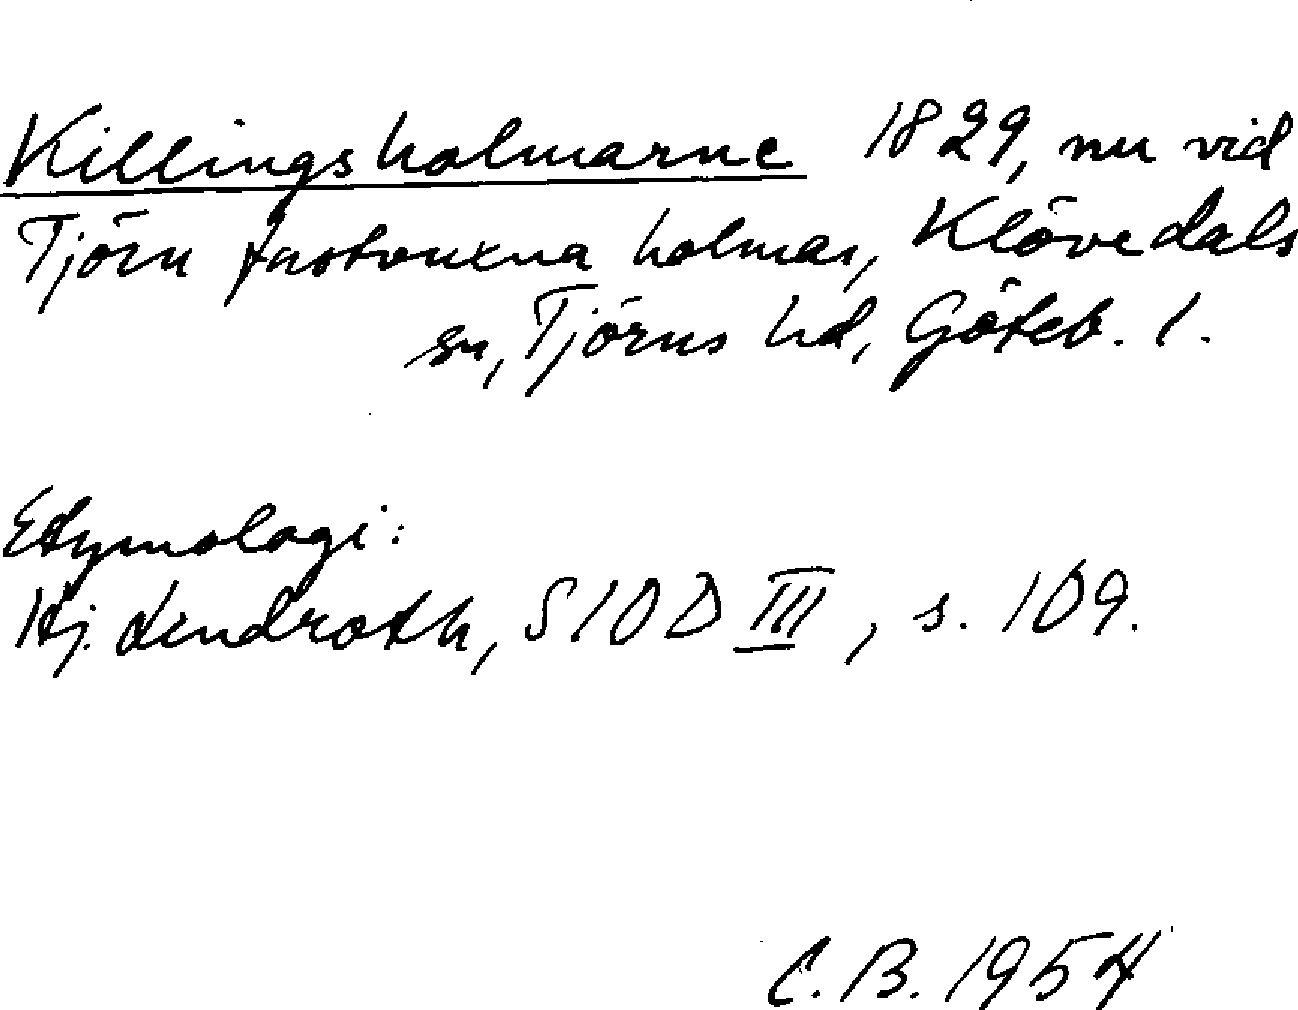 Killingsholmarne 1829, nu vid
Tjörn fastvuxna holmar, Klövedals
sn, Tjörns hd, Göteb. l.
Etymologi:
Hj. Lindroth, SIOD III, s. 109.
C.B. 1954